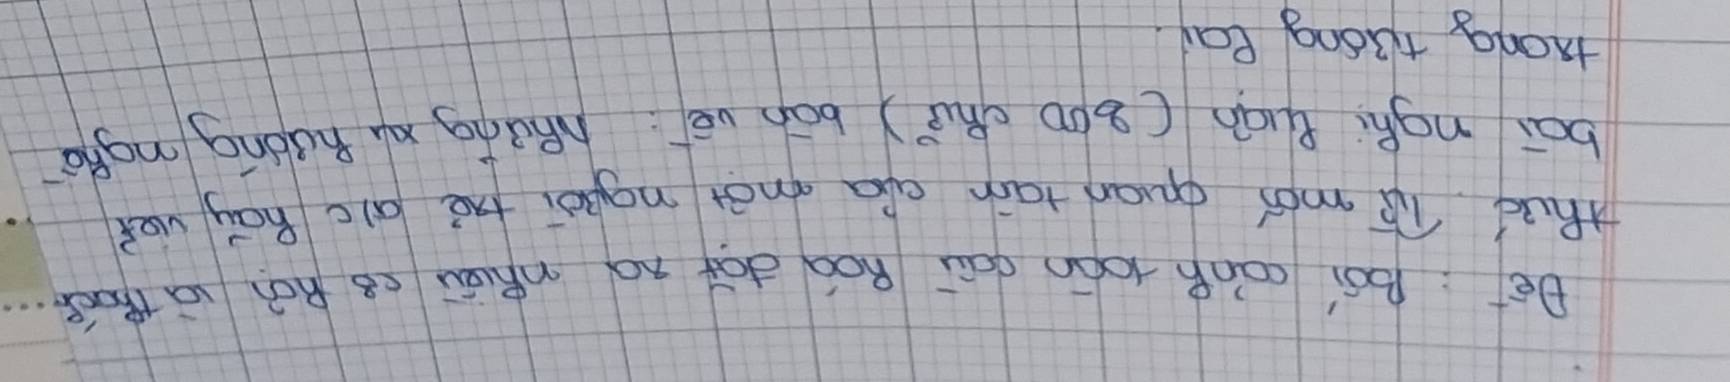 Đề : Bối cảnh toàn cầu hoá đặt ra nhiều cơ hội và thách
thức. Từ mối quan tâm của một người trẻ a/c hãy viết
bài nghị luận (800 chữ) bàn về : những xu hướng nghề
trong tương lai.